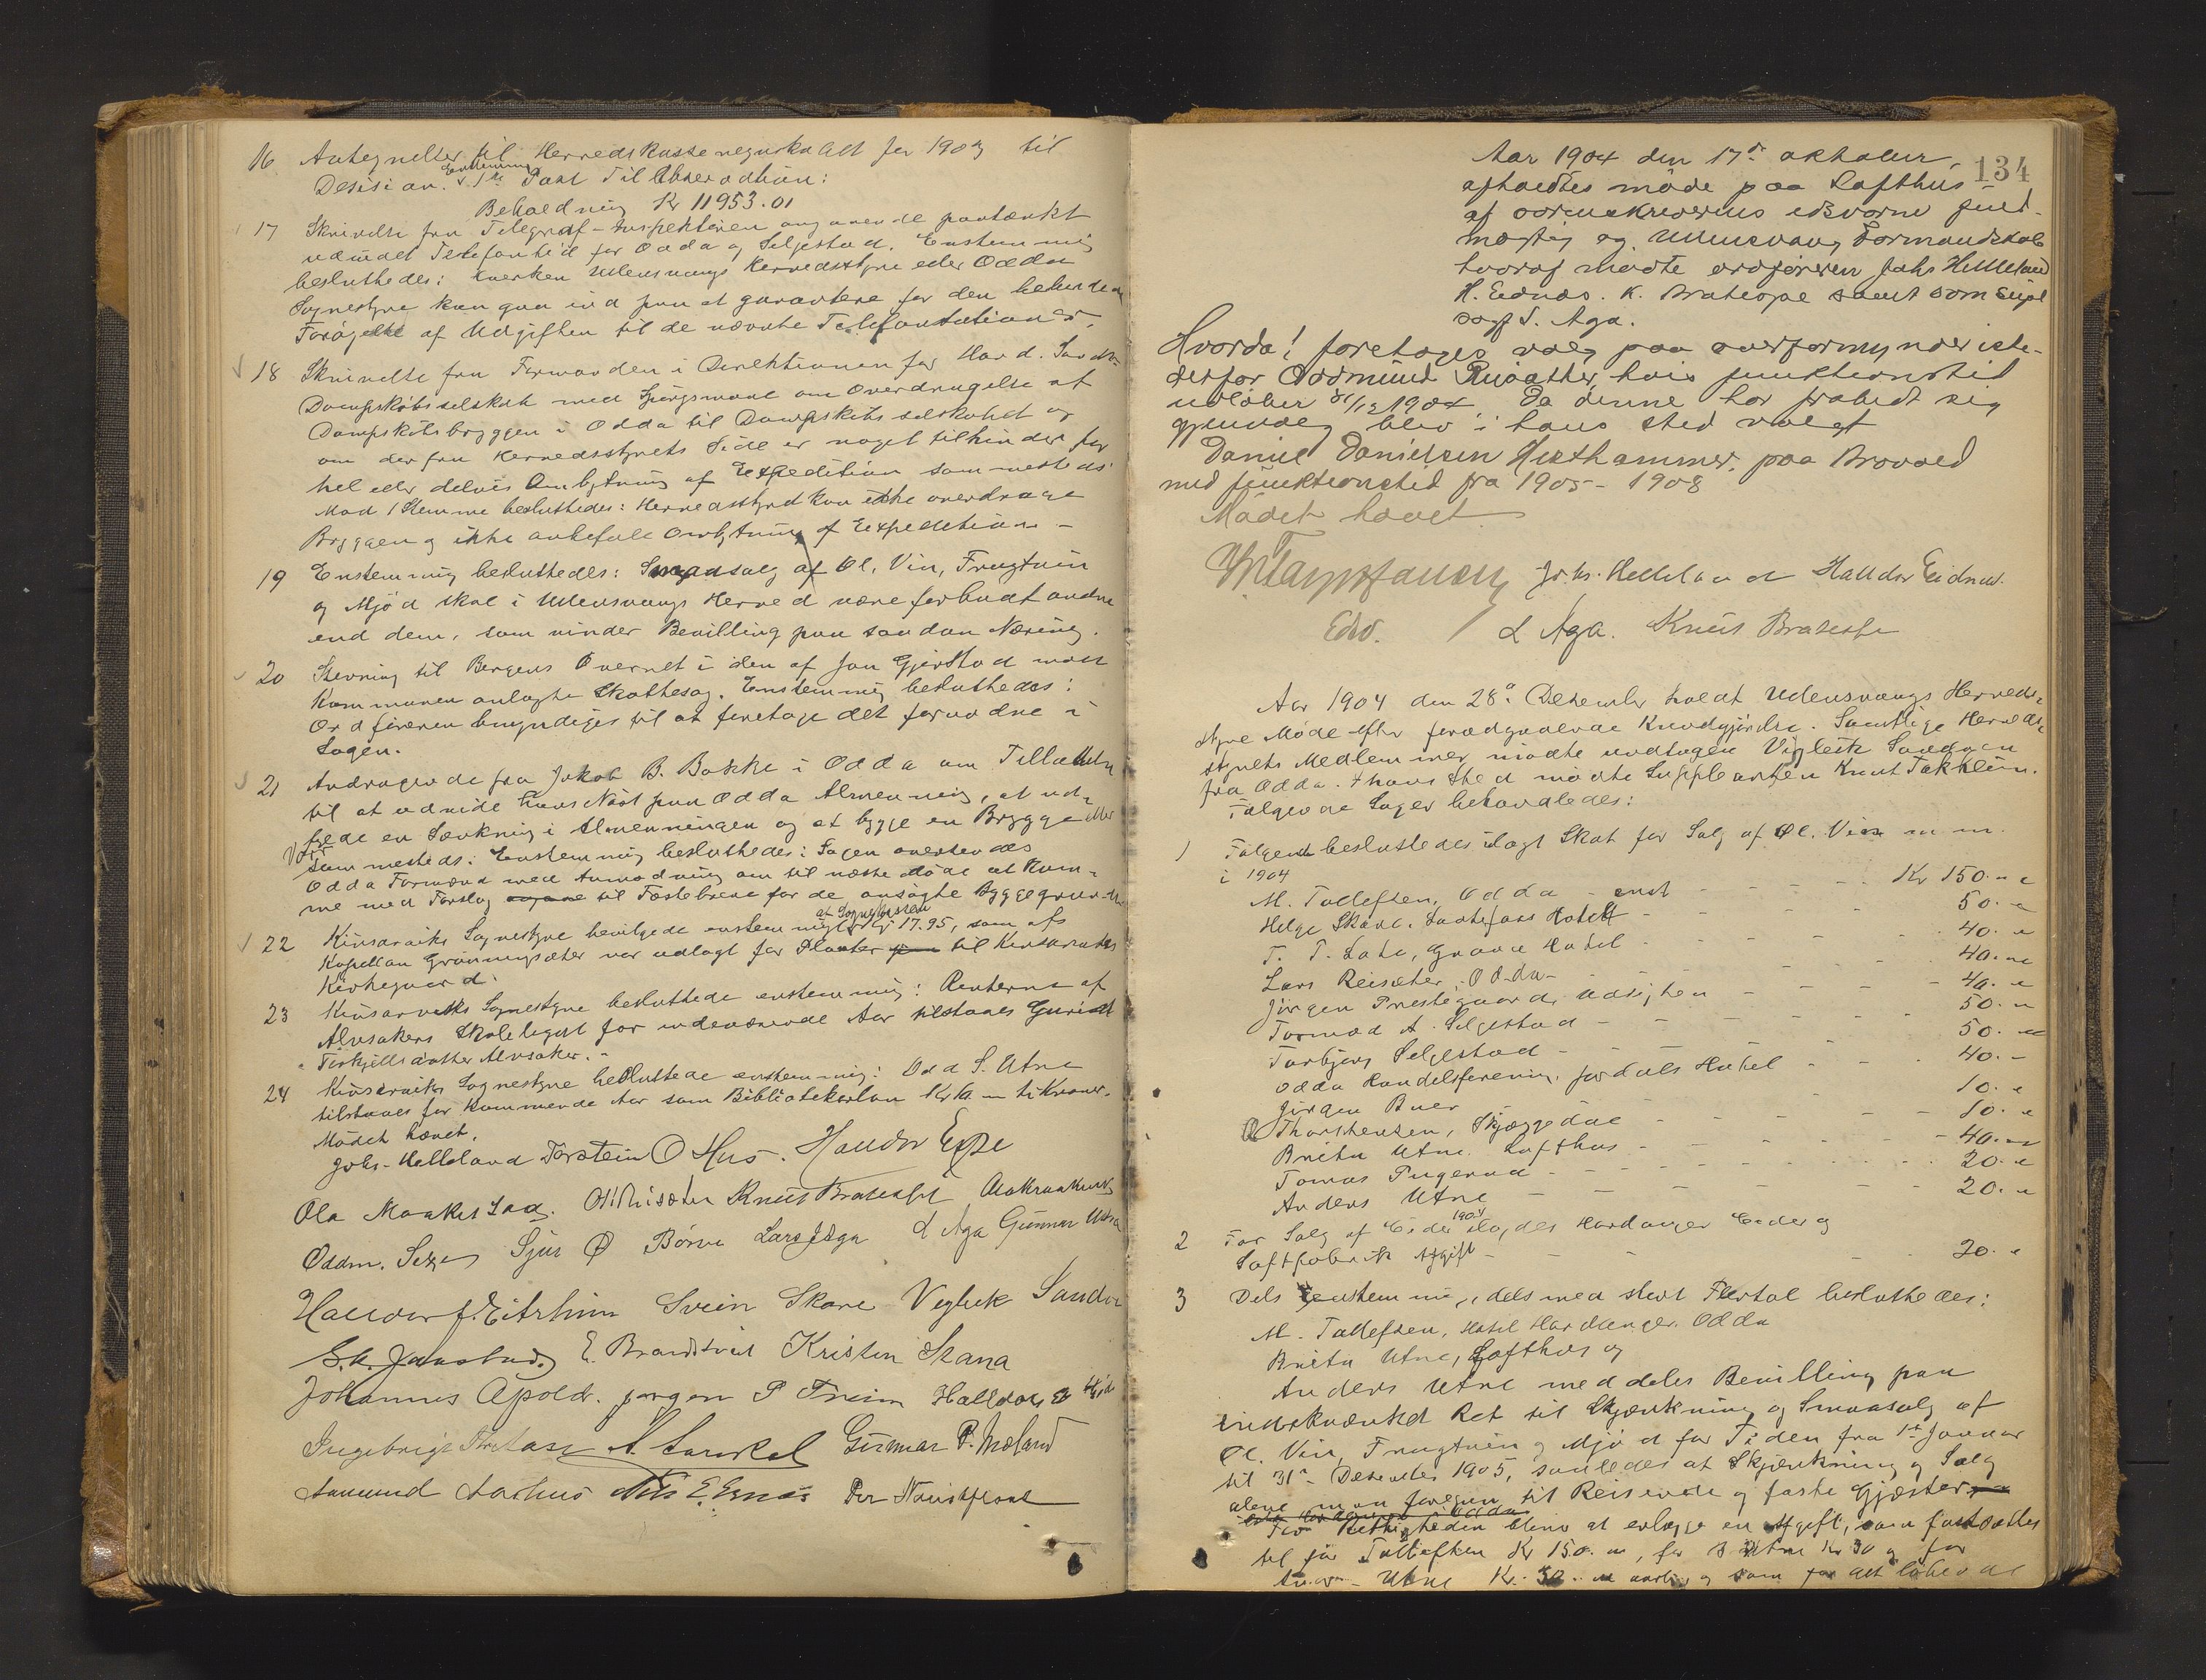 16 Antegnelser til Herredskasseregnskabet for 1903 til
Desision. Enstemmig 1ste Post Til Observation:
Beholdning Kr 11953.01
17 Skrivelse fra Telegraf-Inspektøren angaaende paatænkt
udvidet Telefontid for Odda og Seljestad. Enstemmig
besluttedes: hverken Udensvangs Herredsstyre eller Odda
Sognestyre kan gaa ind paa at garantere for den
Forøgelse af Udgiften til de nævnte Telefonstationer.
18 Skrivelse fra Formanden i Direktionen for Hard. Søndh.
Dampskibsselskab med Spørgsmaal om Overdragelse af
Dampskibsbryggen i Odda til Dampskibsselskabet og
om der fra Herredsstyrets Side er noget tilhinder for
hel eller delvis Ombytning af Expedition sammesteds.
Mod 1 Stemme besluttedes: Herredsstyret kan ikke overdrage
Bryggen og ikke anbefale Ombytning af Expedition -
19 Enstemmig besluttedes: Smaasalg af Øl, Vin, Frugtvin
og Mjød skal i Udensvangs Herred være forbudt andre
end dem, som vinder Bevilling paa saadan Næring.
20 Stevning til Bergens Overret i den af Jon Gjerstad mod
Kommunen anlagte Skattesag. Enstemmig besluttedes:
Ordføreren bemyndiges til at foretage det fornødne i
Sagen.
21 Andragende fra Jakob B. Bakke i Odda om Tilladelse
til at udvide hans Nøst paa Odda Almenning, at ud-
en Senkning i Almenningen og at bygge en Brygge eller
Vor sammesteds: Enstemmig besluttedes: Sagen oversendes
Odda Formænd med Anmodning om til næste Møde at kom-
me med Forslag til Fæstebreve for de ansøgte Byggegrunde
22 Kinsarviks Sognestyre bevilgede enstemmig at Sognekassen Kr 17.95, som af
Kapellan Grønningsæter var udlagt for Planter til Kinsarviks
Kirkegaard.
23 Kinsarviks Sognestyre besluttede enstemmig: Renterne af
Alvsakers Skolelegat for indeværende Aar tilstaaes Guri
Torkjellsdatter Alvsaker. -
24 Kinsarviks Sognestyre besluttede enstemmig: Odd S. Utne
tilstaaes for kommende Aar som Bibliotekarløn Kr 10 - ti Kroner.
Mødet hævet.
Johs. Helleland Torstein O Hus. Halldor Espe
Ola Maakestad. Knut Bratespe
Oddm. Sexe Sjur Ø Børve Lars J Aga L Aga Gunnar
Halldor J. Eitrheim Svein Skare Vigleik Sandven
E. Brandstveit Kristen Skara
Johannes Apold. Jørgen P Freim Halldor
Ingebrigt Gunnar P. Mæland
Aamund Aarhus Nils E. Ernes Per Naustflaat
134
Aar 1904 den 17de oktober,
afholdtes møde paa Lofthus
af sorenskriverens edsvorne fuld-
mægtig og Udensvang Formandskab
hvoraf mødte ordføreren Johs Helleland
H. Eidnes. K. Bratespe samt som
L. Aga.
Hvorda! foretoges valg paa overformynder iste-
detfor Oddmund Reisæther, hvis funktionstid
udløber 31/12 1904. Da denne har frabedt sig
gjenvalg blev i hans sted valgt
Daniel Danielsen Hesthammer, paa Bravold
med funktionstid fra 1905-1908
Mødet hævet
Johs. Helleland Halldor Eidnes.
Edsv. L Aga. Knut Bratespe
Aar 1904 den 28de Desember holdt Udensvangs Herreds-
styre Møde efter foregaaende Kundgjørelse. Samtlige Herreds-
styrets Medlemmer mødte undtagen Vigleik Sandven
fra Odda. I hans Sted mødte Suppleanten Knut Jakheim.
Følgende Sager behandledes:
1 Følgende besluttedes ilagt Skat for Salg af Øl, Vin m m.
i 1904
M. Tollefsen, Odda - - - - Kr 150. -
Helge Skare, Laatefoss Hotel - - 50. -
T. T. Lote, Grand Hotel - - 40. -
Lars Reisæter, Odda - - 40. -
Jørgen Prestegaard, Udsigten - - 40. -
Tormod A. Seljestad - - 50. -
Torbjørg Seljestad - - 50. -
Odda Handelsforening, Jordals Hotel - 40. -
Jørgen Buer - - 10. -
O Thorstensen, Skjæggedal - - 10. -
Brita Utne. Lofthus - - 40. -
Tomas Pugerud - - 20. -
Anders Utne - - 20. -
2 For Salg af Cider 1904 ilagdes Hardanger Cider og
Saftfabrik Afgift - - 20. -
3 Dels Enstemmig, dels med stort Flertal besluttedes:
M. Tollefsen, Hotel Hardanger Odda
Brita Utne, Lofthus og
Anders Utne meddeles Bevilling paa
indskrænket Ret til Skjænkning og Smaasalg af
Øl, Vin, Frugtvin og Mjød for Tiden fra 1ste Januar
til 31te Desember 1905, saaledes at Skjænkning og Salg
alene maa foregaa til Reisende og faste Gjæster
For Rettigheden blive at erlægge en Afgift, som fastsættes
til for Tollefsen Kr 150. -, for B Utne Kr 30 og for
Anders Utne Kr. 30. - aarlig og som for det løbende